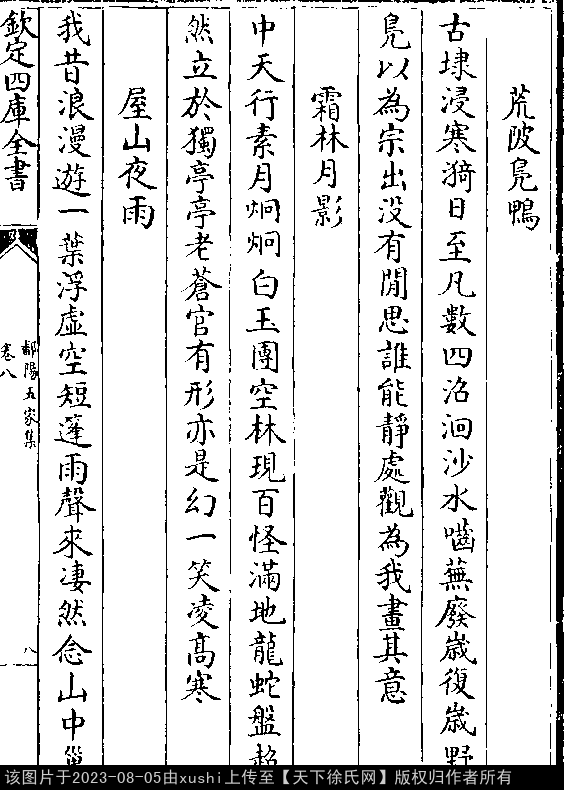 荒陂鳬鴨
古埭浸寒漪日至凡數四沿洄沙水嚙蕪廢歳復歳野
鳬以為宗出没有閒思誰能靜處觀為我畫其意
霜林月影
中天行素月炯炯白玉團空林現百怪滿地龍蛇盤超
然立於獨亭亭老蒼官有形亦是幻一笑凌髙寒
屋山夜雨
我昔浪漫遊一葉浮虛空短蓬雨聲來凄然念山中
欽定四庫全書
鄱陽五家集
卷八
八
该图片于2023-08-05由xushi上传至【天下徐氏网】版权归作者所有